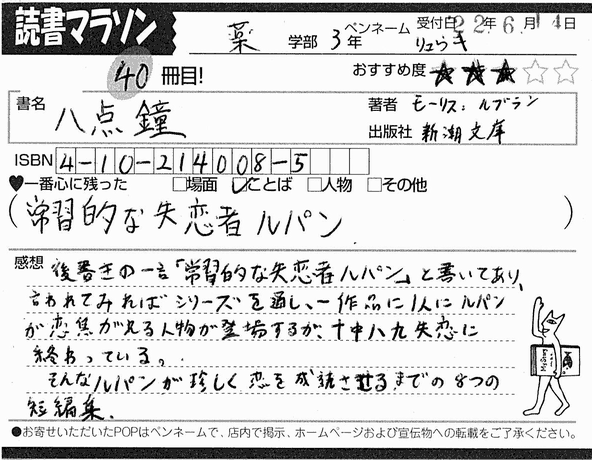 読書マラソン
薬 学部 3年 ペンネーム リュウキ 受付日 22年 6月 14日
40冊目!
おすすめ度 ★★★☆☆
書名 八点鐘
著者 モーリス:ルブラン
出版社 新潮文庫
ISBN 4-10-214008-5
♥一番心に残った □場面 ☑ことば □人物 □その他
(常習的な失恋者ルパン)
感想 後書きの一言「常習的な失恋者ルパン」と書いてあり、
言われてみればシリーズを通し、一作品に1人にルパン
が恋焦がれる人物が登場するが、十中八九失恋に
終わっている。
そんなルパンが珍しく恋を成就させるまでの8つの
短編集。
●お寄せいただいたPOPはペンネームで、店内で掲示、ホームページおよび宣伝物への転載をご了承ください。